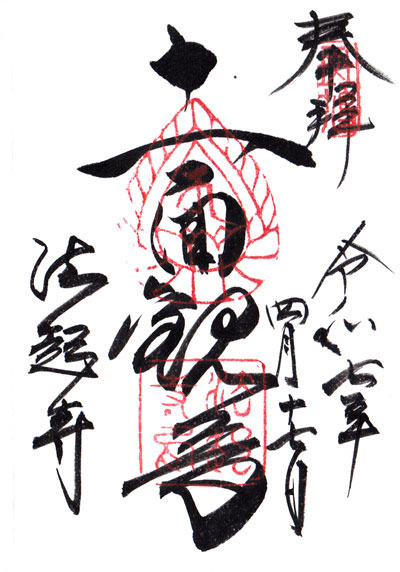 奉拝
令和七年
四月十七日
十一面観音
法起寺